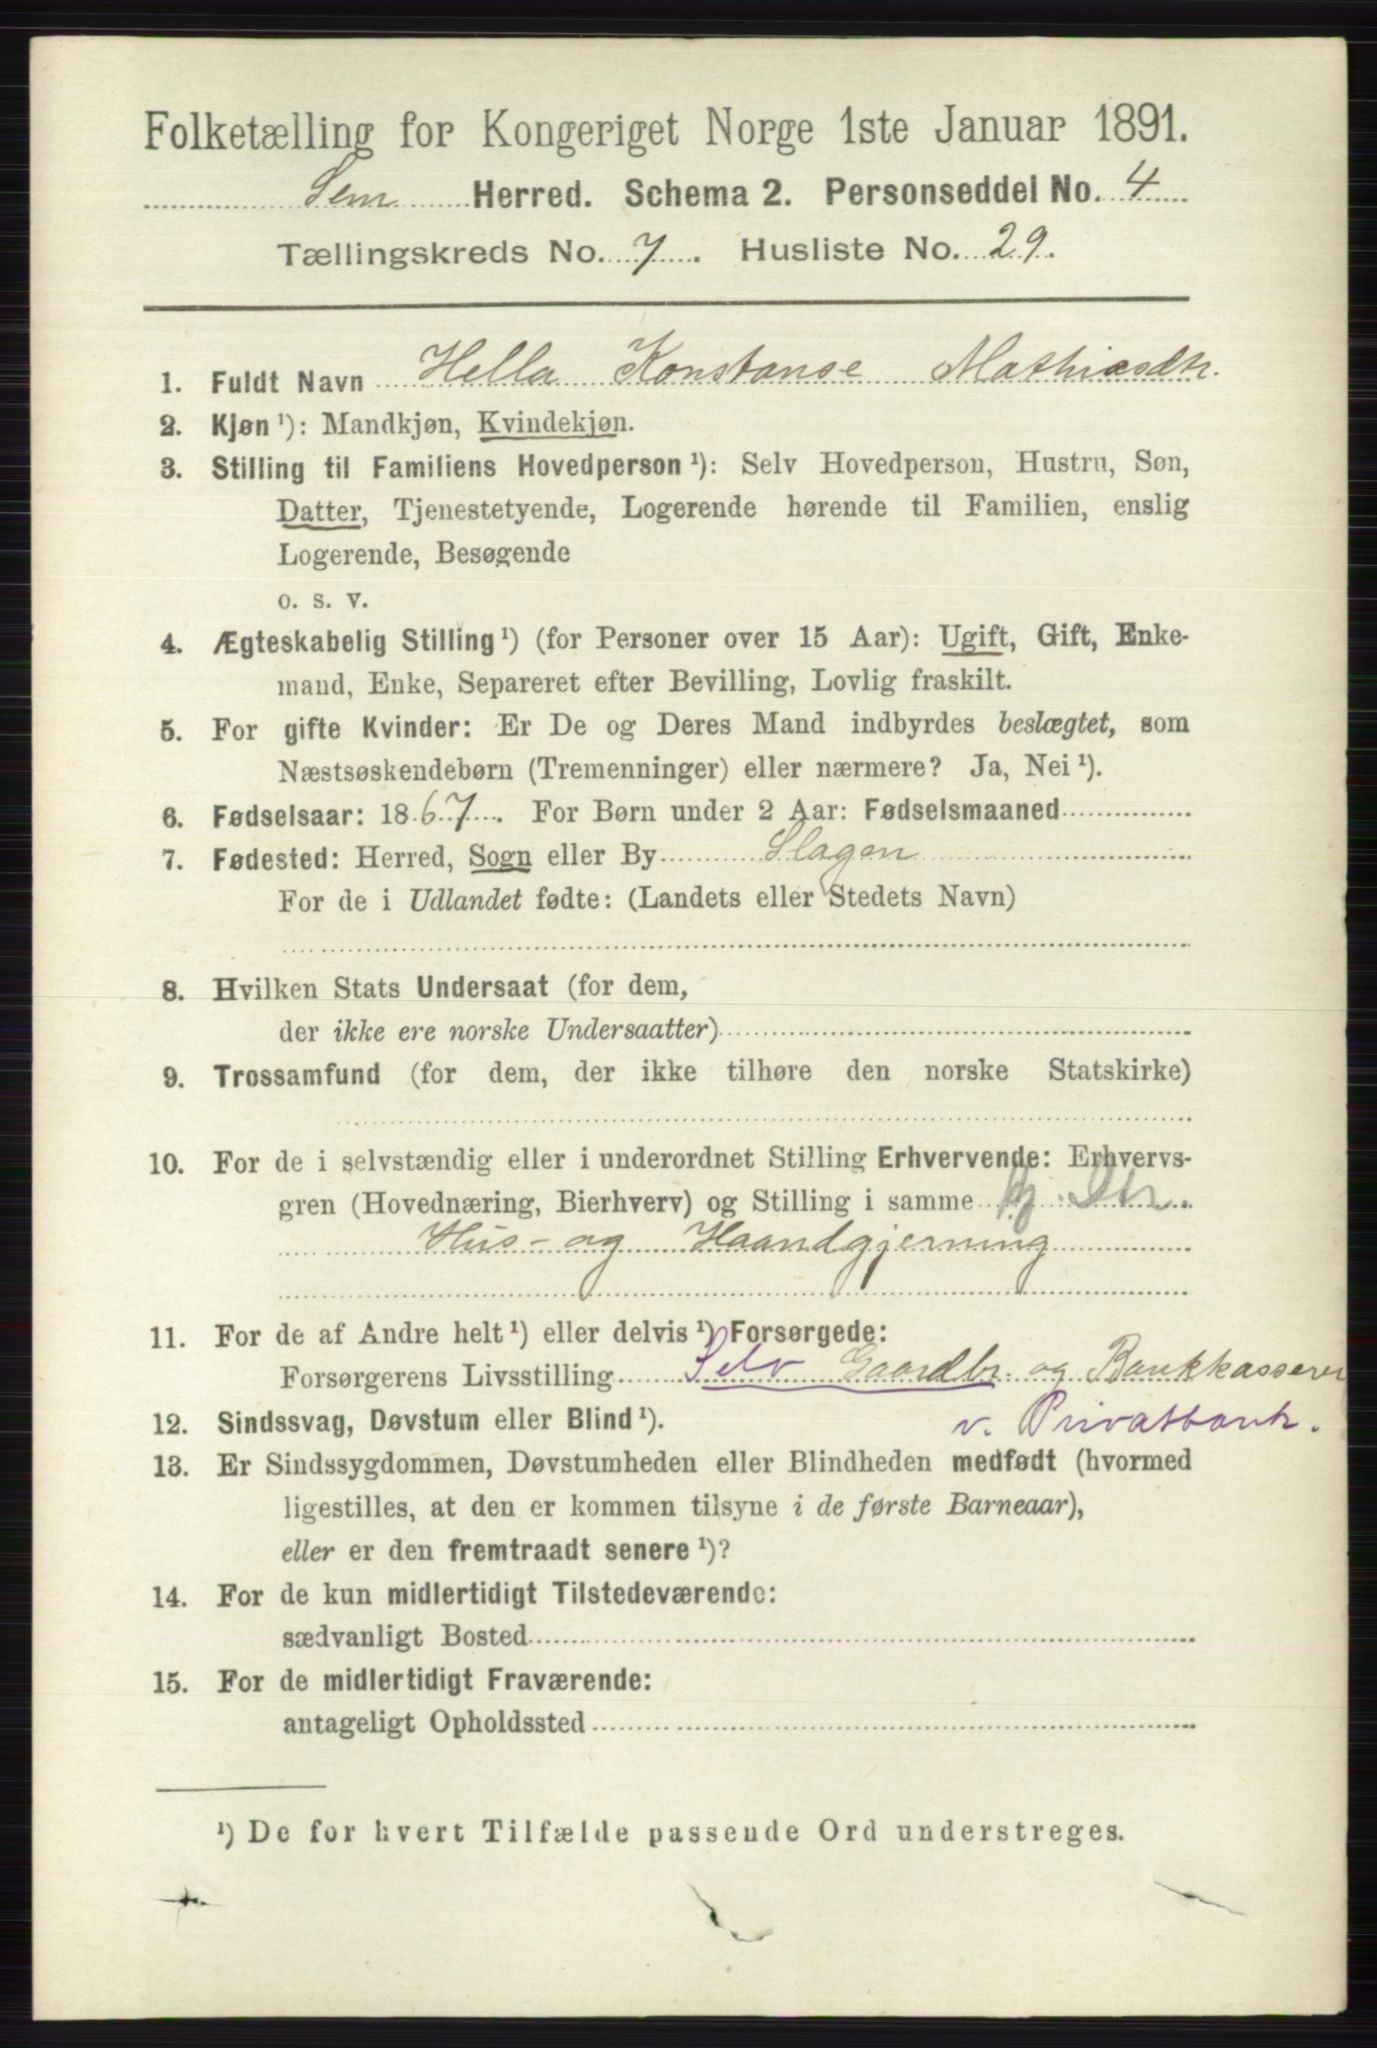 Folketælling for Kongeriget Norge 1ste Januar 1891.
Sem Herred. Schema 2. Personseddel No. 4
Tællingskreds No. 7. Husliste No. 29.
1. Fuldt Navn Hella Konstanse Mathiasdtr.
2. Kjøn ¹): Mandkjøn, Kvindekjøn.
3. Stilling til Familiens Hovedperson ¹): Selv Hovedperson, Hustru, Søn,
Datter, Tjenestetyende, Logerende hørende til Familien, enslig
Logerende, Besøgende
o. s. v.
4. Ægteskabelig Stilling ¹) (for Personer over 15 Aar): Ugift, Gift, Enke-
mand, Enke, Separeret efter Bevilling, Lovlig fraskilt.
5. For gifte Kvinder: Er De og Deres Mand indbyrdes beslægtet, som
Næstsøskendebørn (Tremenninger) eller nærmere? Ja, Nei ¹).
6. Fødselsaar: 1867. For Børn under 2 Aar: Fødselsmaaned
7. Fødested: Herred, Sogn eller By Slagen
For de i Udlandet fødte: (Landets eller Stedets Navn)
8. Hvilken Stats Undersaat (for dem,
der ikke ere norske Undersaatter)
9. Trossamfund (for dem, der ikke tilhøre den norske Statskirke)
10. For de i selvstændig eller i underordnet Stilling Erhvervende: Erhvervs-
gren (Hovednæring, Bierhverv) og Stilling i samme
Hus- og Haandgjerning
11. For de af Andre helt ¹) eller delvis ¹) Forsørgede:
Forsørgerens Livsstilling Selv Gaardbr. og Bankkasserer
12. Sindssvag, Døvstum eller Blind ¹). v. Privatbank.
13. Er Sindssygdommen, Døvstumheden eller Blindheden medfødt (hvormed
ligestilles, at den er kommen tilsyne i de første Barneaar),
eller er den fremtraadt senere ¹)?
14. For de kun midlertidigt Tilstedeværende:
sædvanligt Bosted
15. For de midlertidigt Fraværende:
antageligt Opholdssted
¹) De for hvert Tilfælde passende Ord understreges.